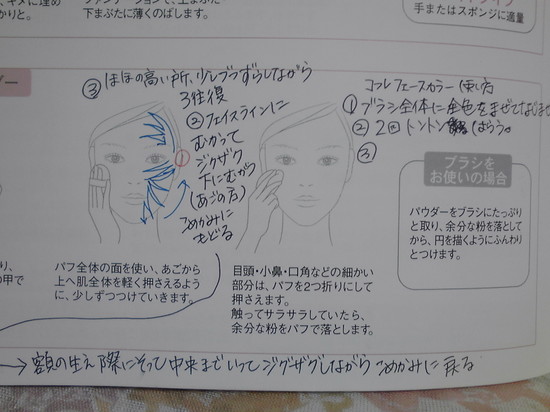 かりと。
下まぶたに薄くのばします。
手またはスポンジに適量
③ ほほの高い所、少しブラシずらしながら
3往復
② フェイスラインに
むかって
ジグザグ
下にむかい
(あごの方)
こめかみに
もどる
①
コフレフェースカラー 使い方
① ブラシ全体に全色をまぜてなじませ
② 2回トントン はらう。
③
ブラシを
お使いの場合
パウダーをブラシにたっぷり
と取り、余分な粉を落として
から、円を描くようにふんわり
とつけます。
パフ全体の面を使い、あごから
上へ肌全体を軽く押さえるよう
に、少しずつつけていきます。
目頭・小鼻・口角などの細かい
部分は、パフを2つ折りにして
押さえます。
触ってサラサラしていたら、
余分な粉をパフで落とします。
り、
の甲で
→ 額の生え際にそって中央までいってジグザグしながら こめかみに戻る